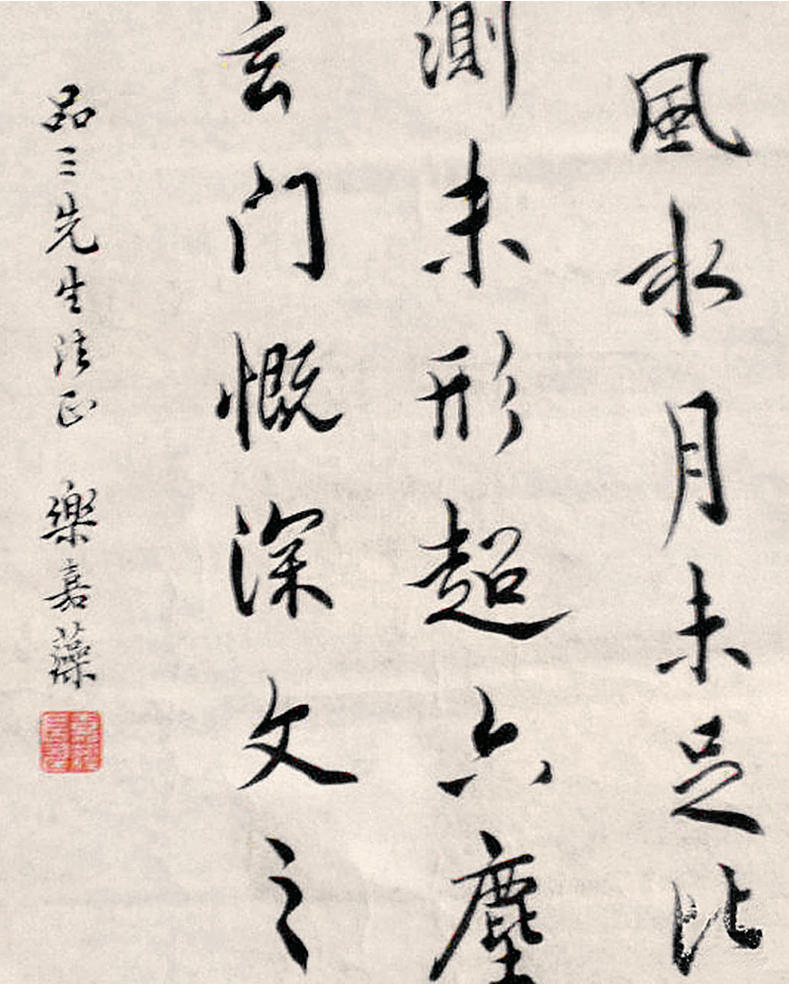 風水月未足比
測未形超六塵
玄门慨深文之
品三先生法正 樂嘉藻